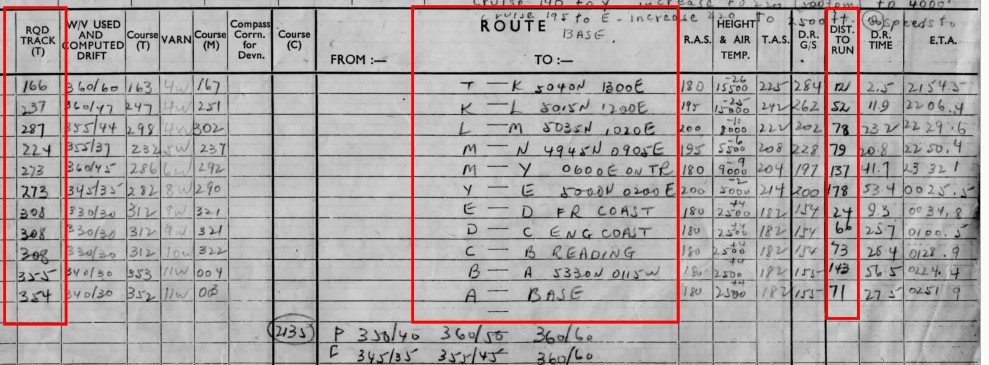 cruise 190 to Y increase to 220 (500 ft/m to 4000'
Cruise 195 to E - increase 220 TO 2500 ft. speeds to
RQD TRACK (T) W/V USED AND COMPUTED DRIFT Course (T) VARN Course (M) Compass Corrn. for Devn. Course (C) FROM :— ROUTE BASE TO :— R.A.S. HEIGHT & AIR TEMP. T.A.S. D.R. G/S DIST. TO RUN D.R. TIME E.T.A.
166 360/60 163 4W 167 T — K 5040N 1300E 180 -26 15500 225 284 121 2.5 2154.5
237 360/47 247 4W 251 K — L 5015N 1200E 195 -25 15000 242 262 52 11.9 2206.4
287 355/44 298 4W 302 L — M 5035N 1020E 200 -11 8000 222 202 78 23.2 2229.6
224 355/37 232 5W 237 M — N 4945N 0905E 195 -6 5500 208 228 79 20.8 2250.4
273 360/45 286 6W 292 M — Y 0600E ON TR 180 -9 9000 204 197 137 41.7 2332.1
273 345/35 282 8W 290 Y — E 5000N 0200E 200 -2 5000 214 200 178 53.4 0025.5
308 330/30 312 9W 321 E — D FR COAST 180 +4 2500 182 154 24 9.3 0034.8
308 330/30 312 9W 321 D — C ENG COAST 180 +4 2500 182 154 66 25.7 0100.5
308 330/30 312 10W 322 C — B READING 180 +4 2500 182 154 73 28.4 0128.9
355 340/30 353 11W 004 B — A 5330N 0115W 180 +4 2500 182 155 143 56.5 0224.4
354 340/30 352 11W A — BASE 180 +4 2500 182 155 71 27.5 0251.9
2135 P 350/40 360/50 360/60
345/35 355/45 360/60